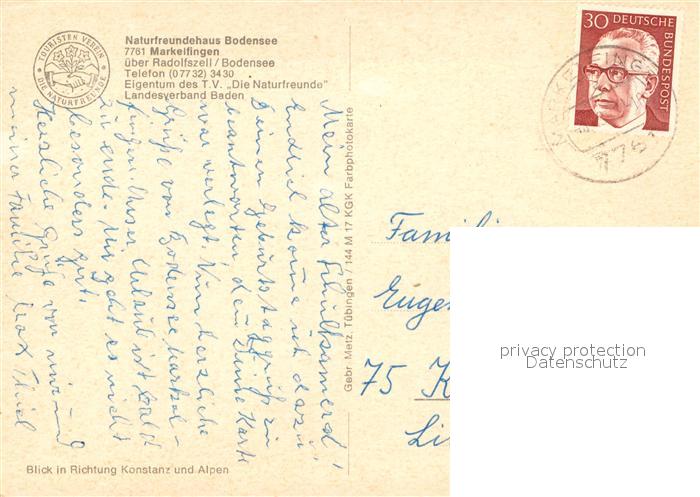 TOURISTEN VEREIN
DIE NATURFREUNDE
Naturfreundehaus Bodensee
7761 Markelfingen
über Radolfszell / Bodensee
Telefon (07732) 3430
Eigentum des T.V. „Die Naturfreunde"
Landesverband Baden
30 DEUTSCHE BUNDESPOST
MARKELFINGEN
776
Mein alter Schulkamerad!
Endlich komme ich dazu
Deinen Geburtstaggruß zu
beantworten, denn Deine Karte
war verlegt. Nun herzliche
Grüße vom Bodensee Markel-
fingen. Unser Urlaub ist bald
zu ende. Mir geht es nicht
besonders gut.
Herzliche Grüße von mir und
meiner Familie Max Thiel
Gebr. Metz, Tübingen / 144 M 17 KGK Farbphotokarte
Familie
Euge
75 K
Li
privacy protection
Datenschutz
Blick in Richtung Konstanz und Alpen